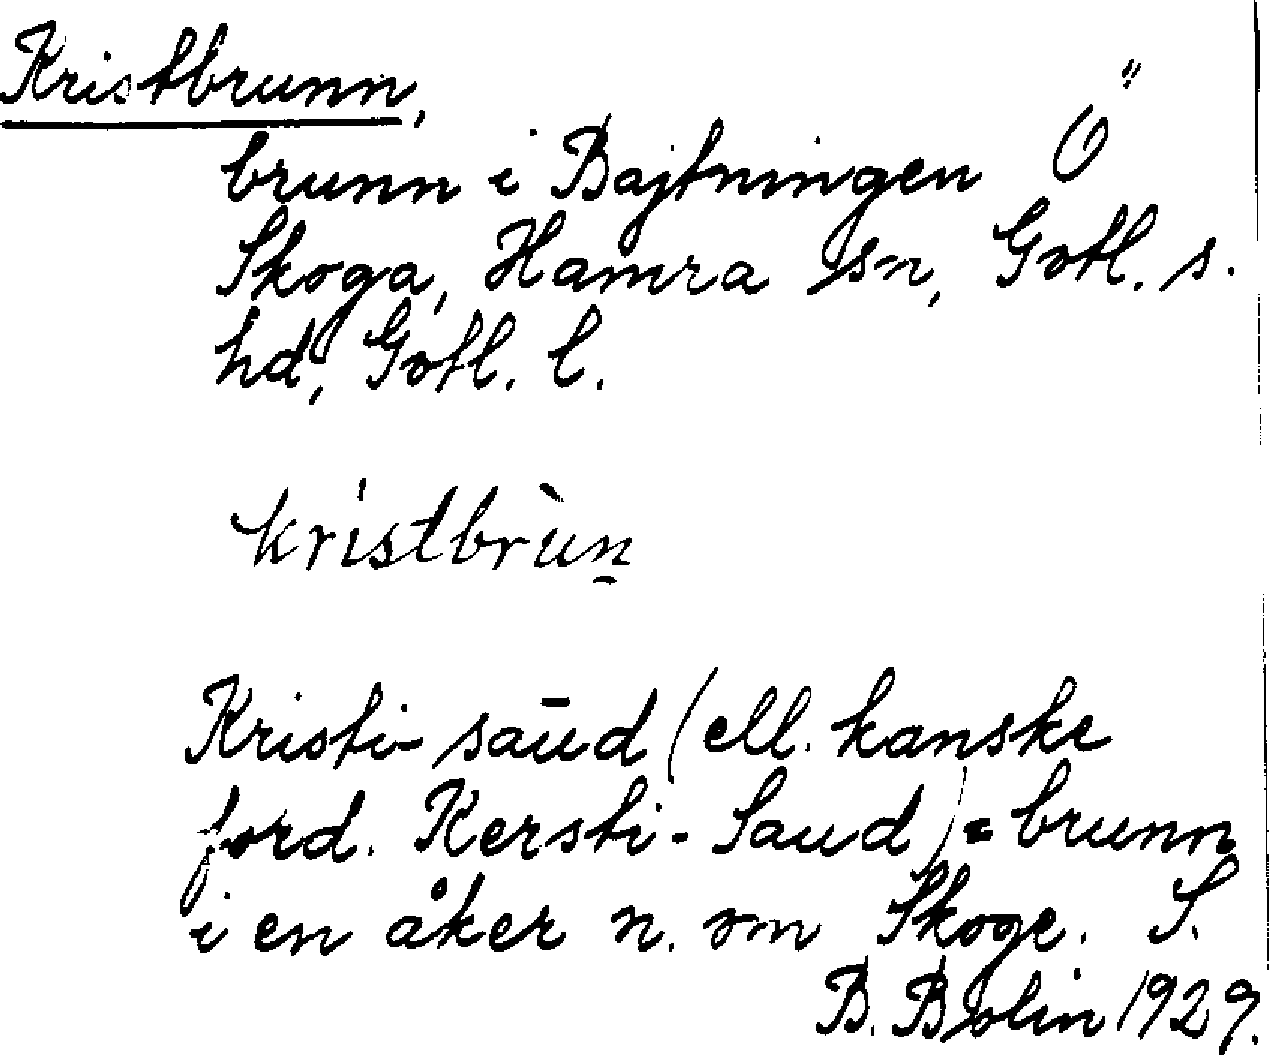 Kristbrunn,
brunn i Bajtningen Ö
Skoga, Hamra sn, Gotl. s.
hd, Gotl. l.
kristbrùn̠
Kristi-saūd (ell. kanske
ford. Kersti-Saud) = brunn
i en åker n. om Skoge. S.
B. Bolin 1929.